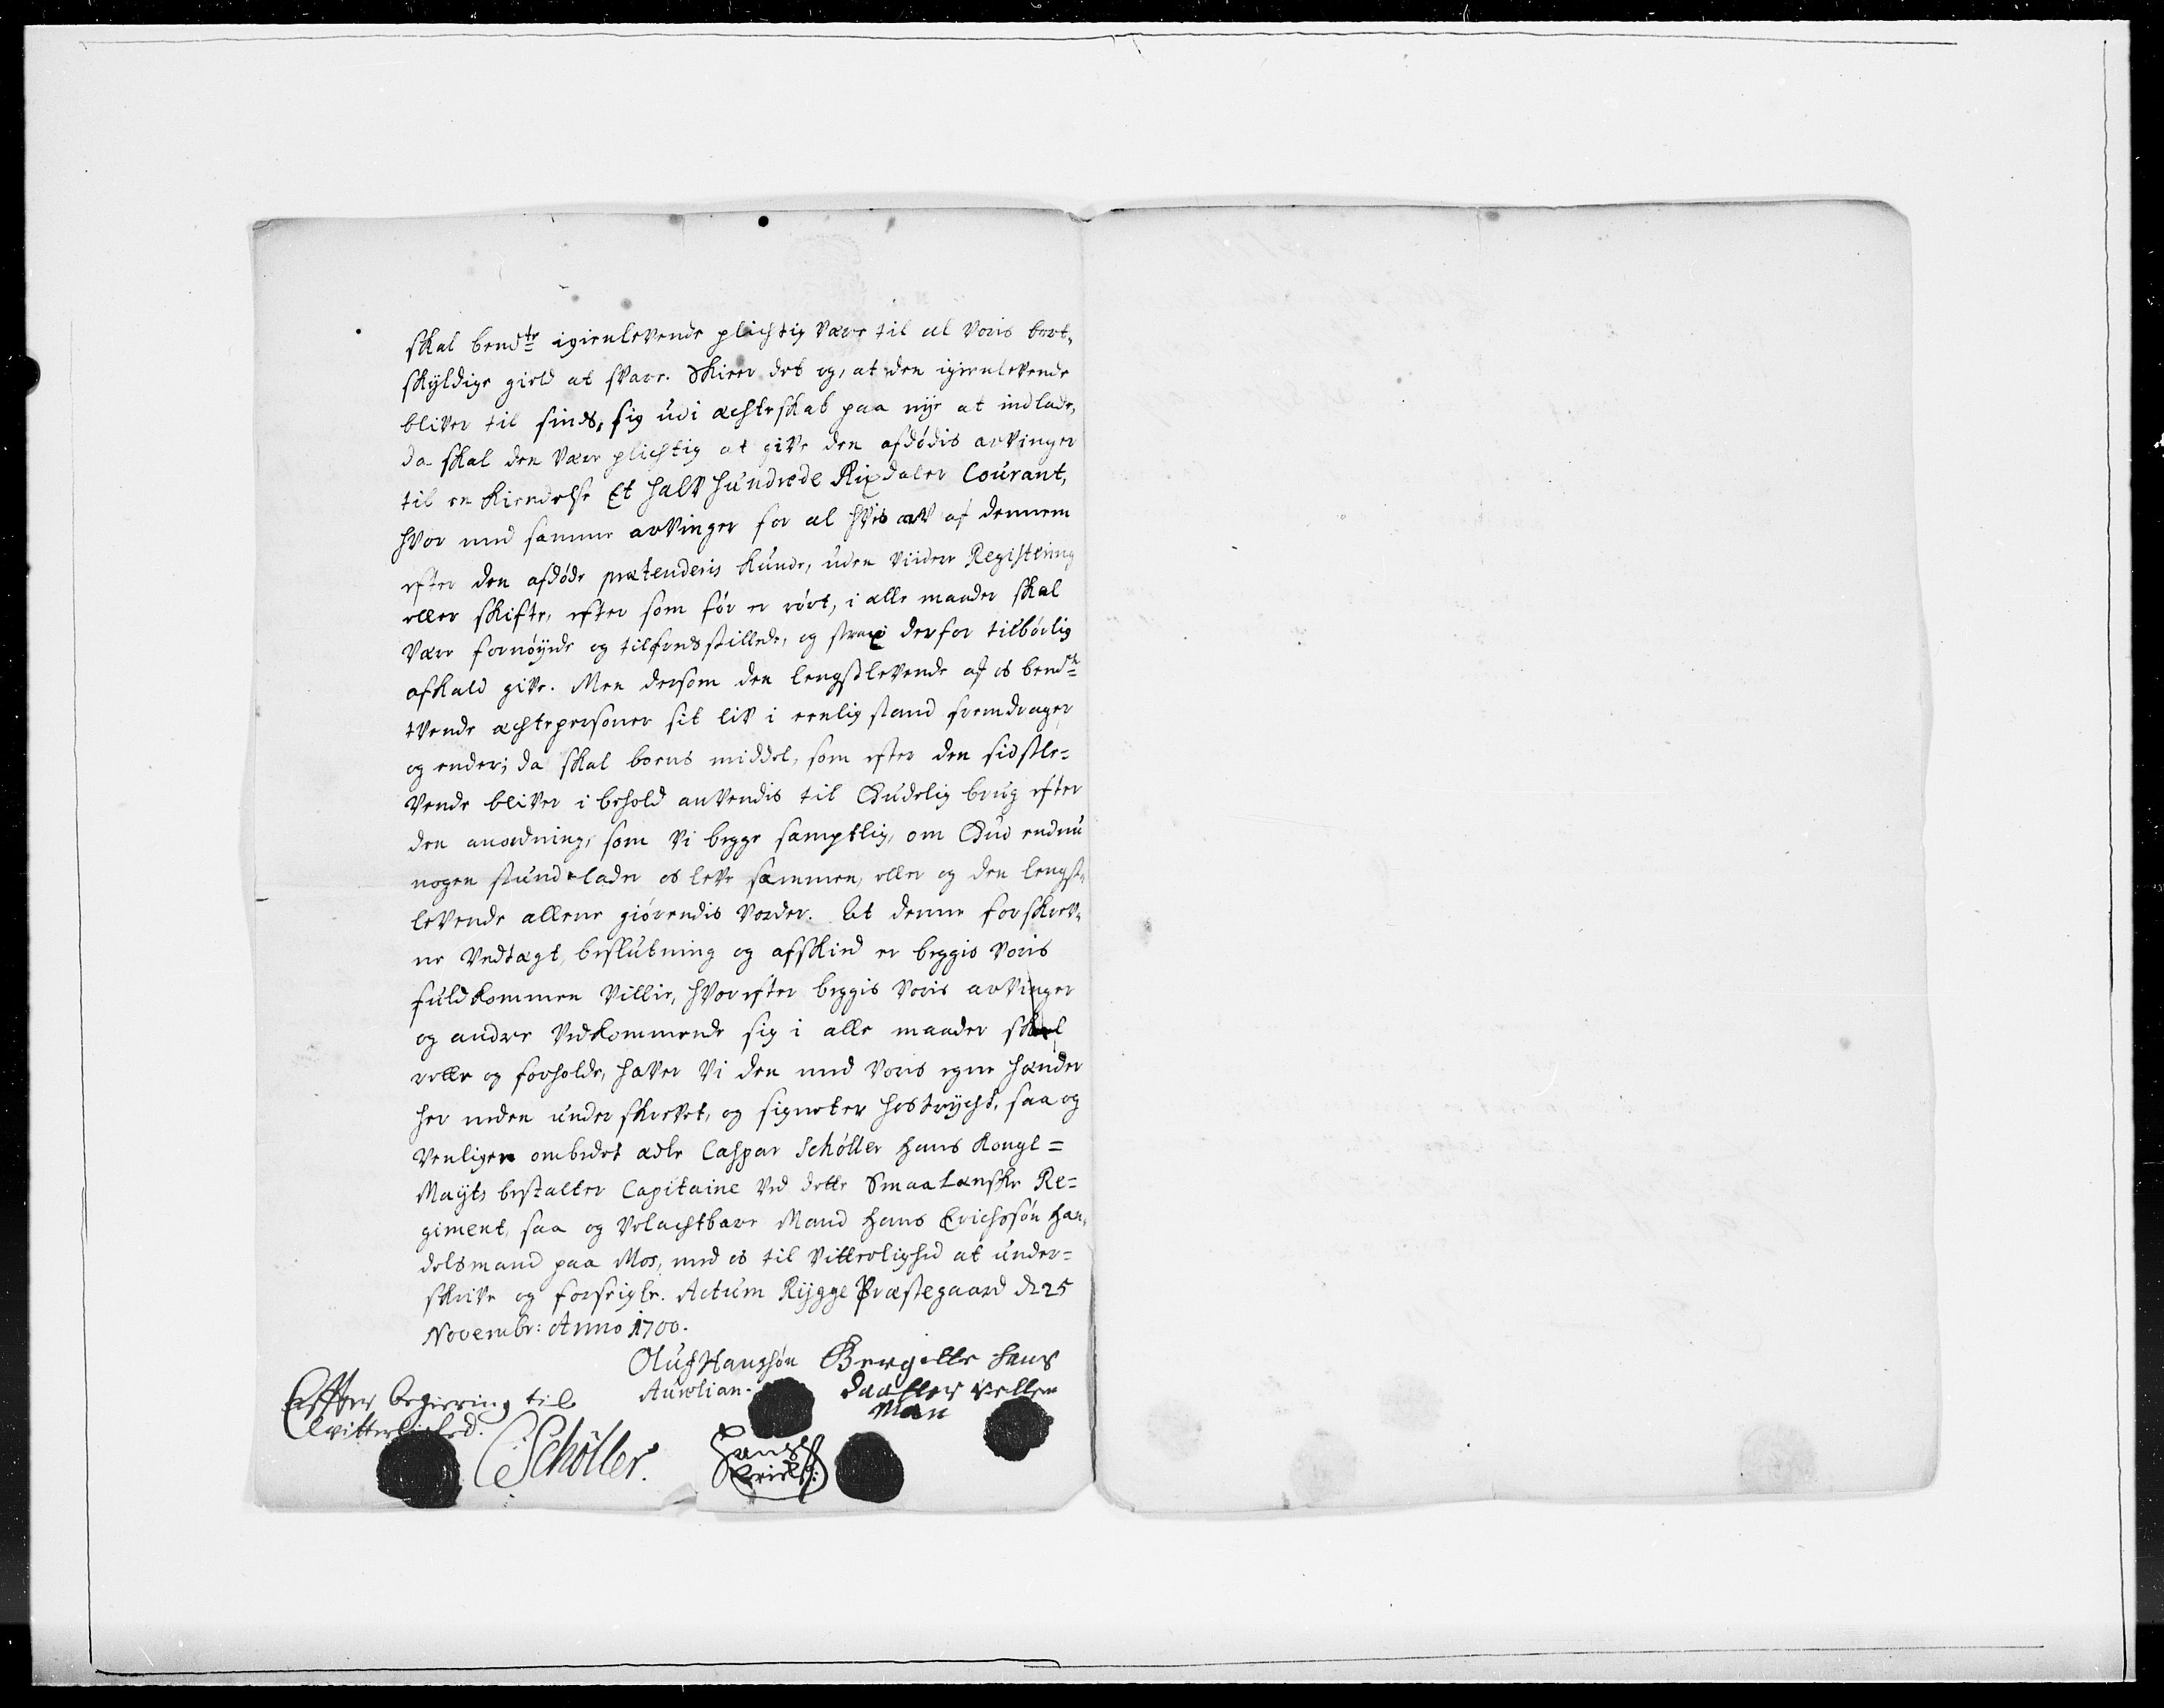 skal bend.te igienlevende plichtig være til al voris bort-
skyldige gield at svare. Skier det og, at den igienlevende
bliver til sinds, sig udi ächteskab paa nye at indlade,
da skal den være plichtig at give den afdödis arvinger
til en kiendelse Et halv hundrede Rixdaler Courant,
hvor med samme arvinger for al hvis arv af dennem
efter den afdöde prætenderis kunde, uden viidere Registering
eller skifte, efter som för er rört, i alle maader skal
være fornöyede og tilfredsstillede, og strax derfor tilbörlig
afkald give. Men dersom den lengstlevende af os bend.te
tvende ächtepersoner sit liv i eenlig stand fremdrager
og ender; da skal voris middel, som efter den sidstle=
vende bliver i behold anvendis til Gudelig brug efter
den anordning, som vi begge samptlig, om Gud endnu
nogen stund lader os leve sammen, eller og den lengst-
levende allene giörendis vorder. At denne forskrev-
ne vedtægt, beslutning og afskied er beggis voris
fuldkommen villie, hvorefter beggis voris arvinger
og andre vedkommende sig i alle maader skal
rette og forholde, haver vi den med voris egne hænder
her neden underskrevet, og signeter hostrycht, saa og
venligen ombedet ædle Caspar Schöller Hans Kongl=
Mayts bestalter Capitaine ved dette Smaalænske Re=
giment, saa og velachtbare Mand Hans Erichssön Han-
delsmand paa Mos, med os til vitterlighed at under=
skrive og forseigle. Actum Rygge Præstegaard d 25
Novembr: Anno 1700.
Oluf Hanssön Bergitte Hans
Aurolian. Daatter Velle
man
Effter begiering til
vitterlighed.
CSchöller.
Hans
Erichs: